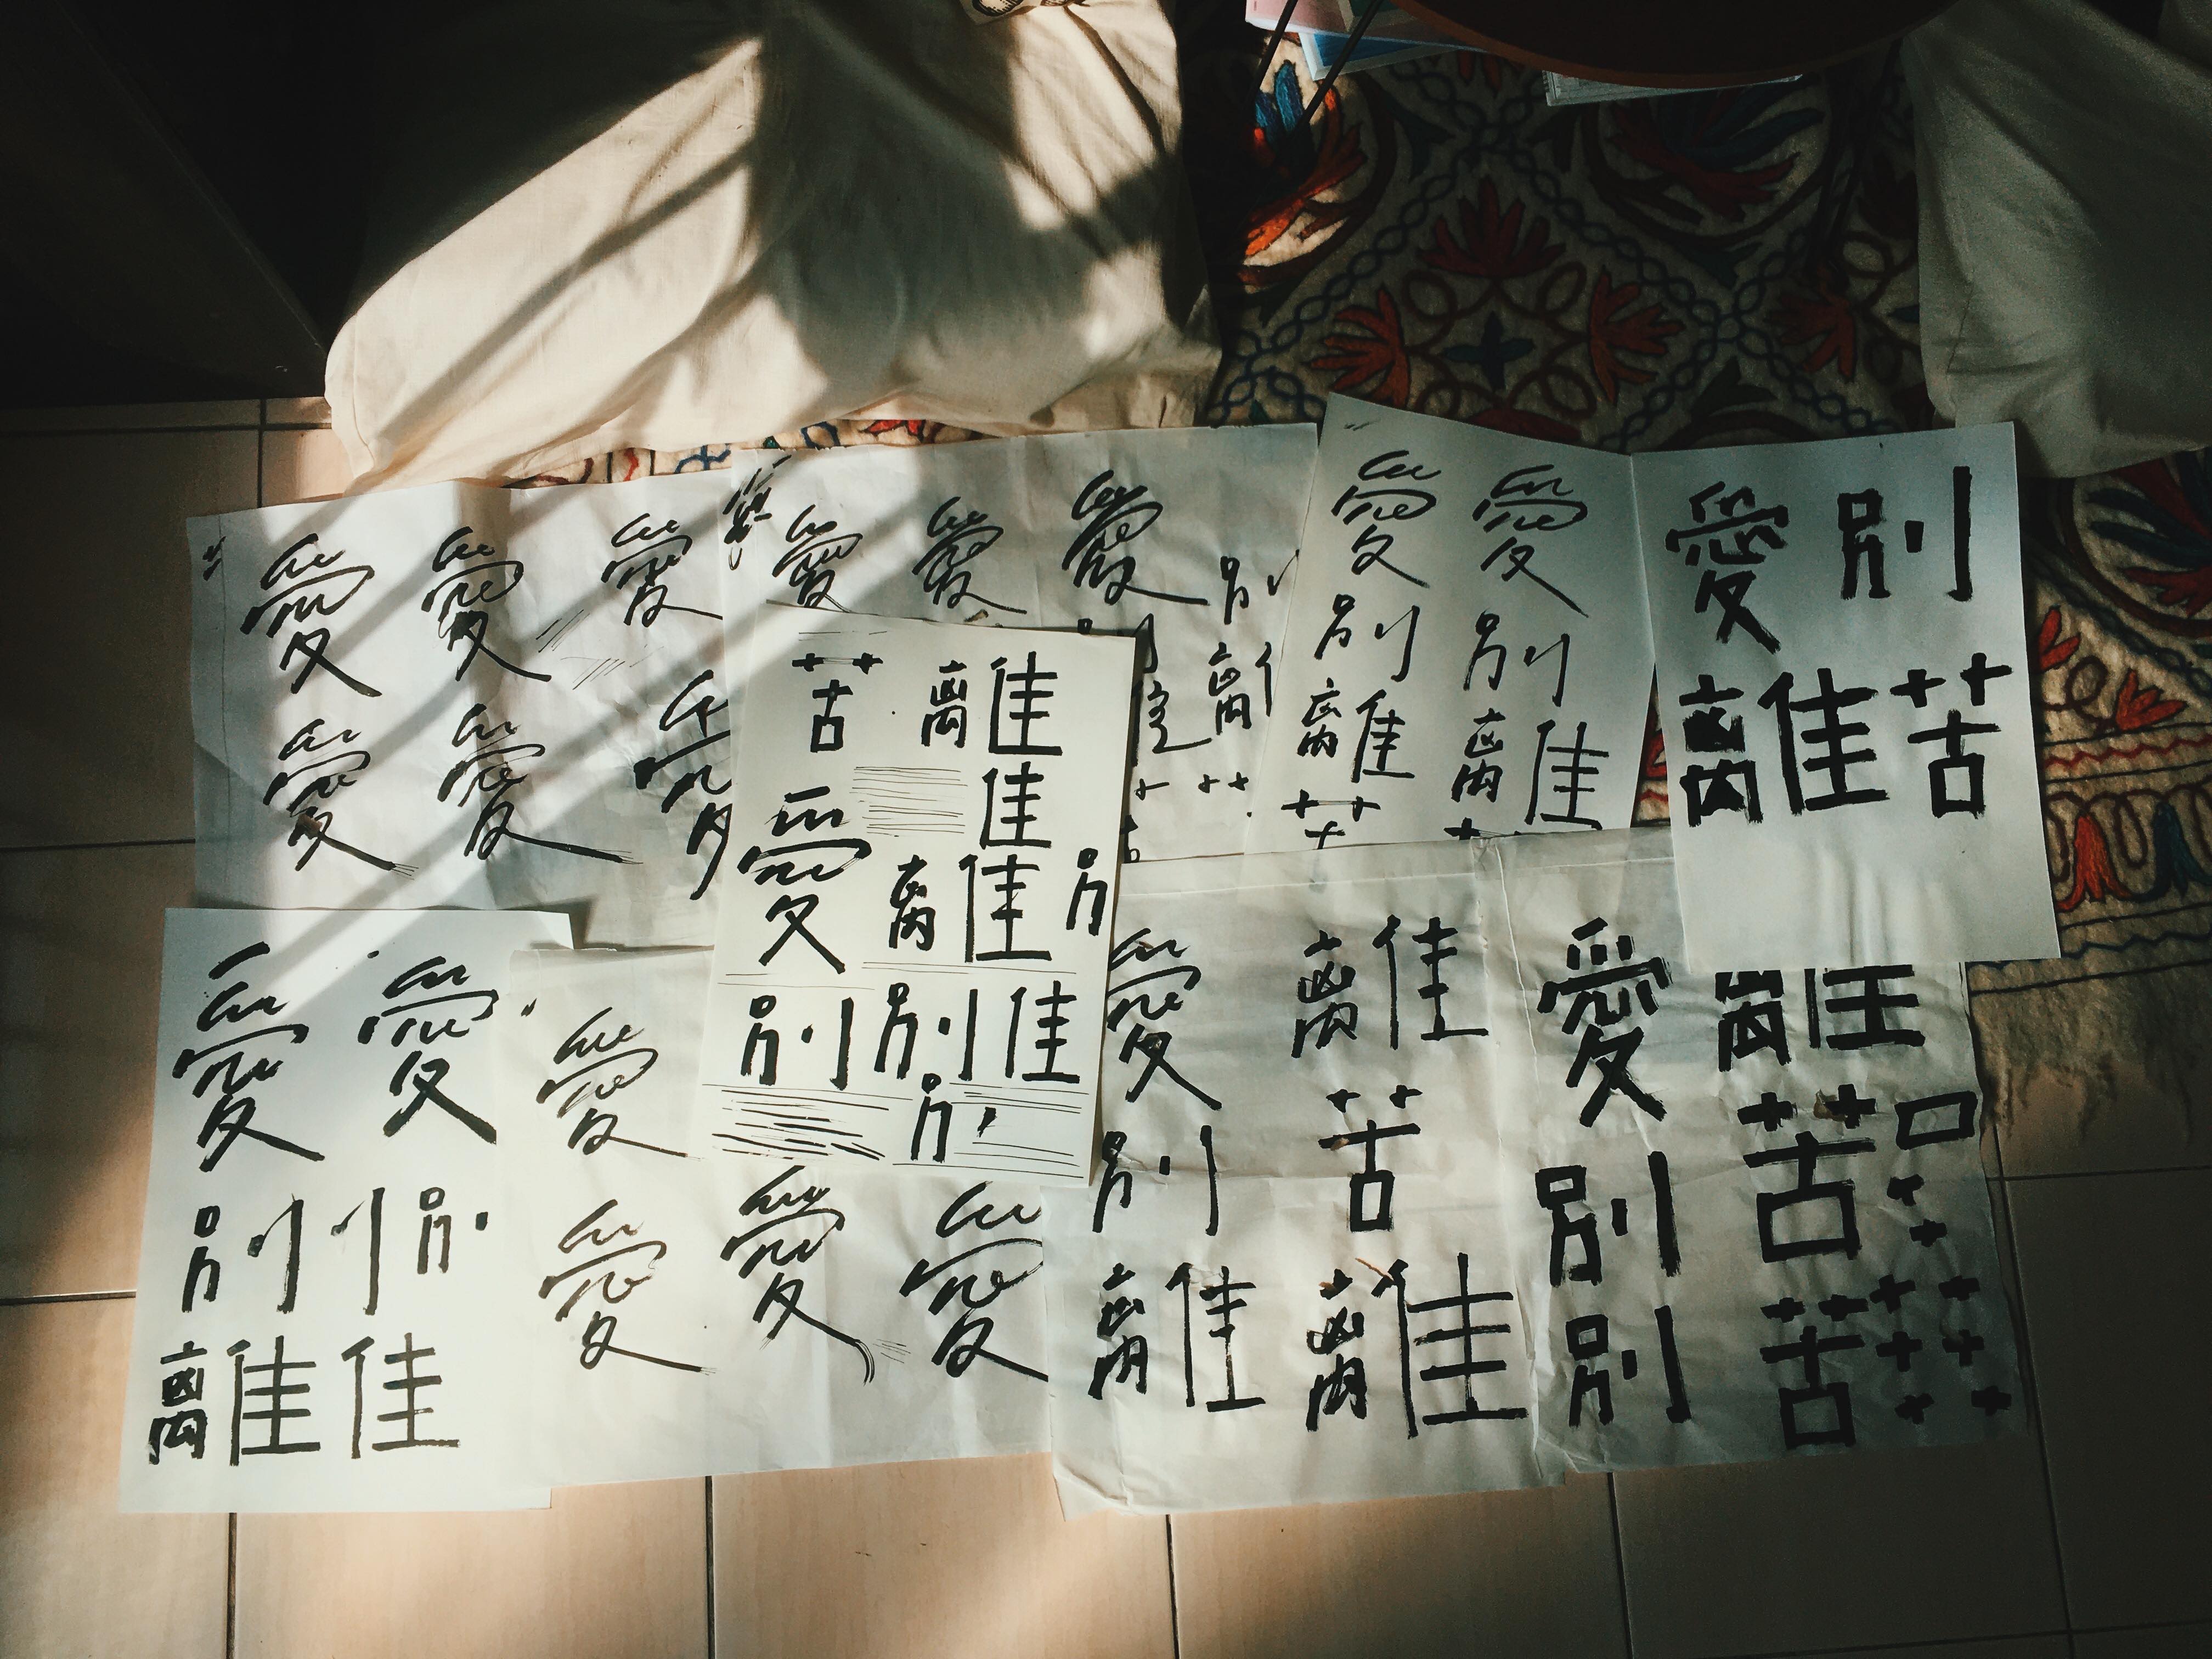 愛 愛 愛
愛 愛 愛
愛 愛 愛
別
離
愛 愛
別 別
離 離
苦
愛 別
離 苦
苦 離
隹
愛 離 另
別 別 隹
另
愛 愛
別
離 隹
愛
愛 愛 愛
愛 離
別 苦
離 離
愛 離
苦 口
別
別 苦